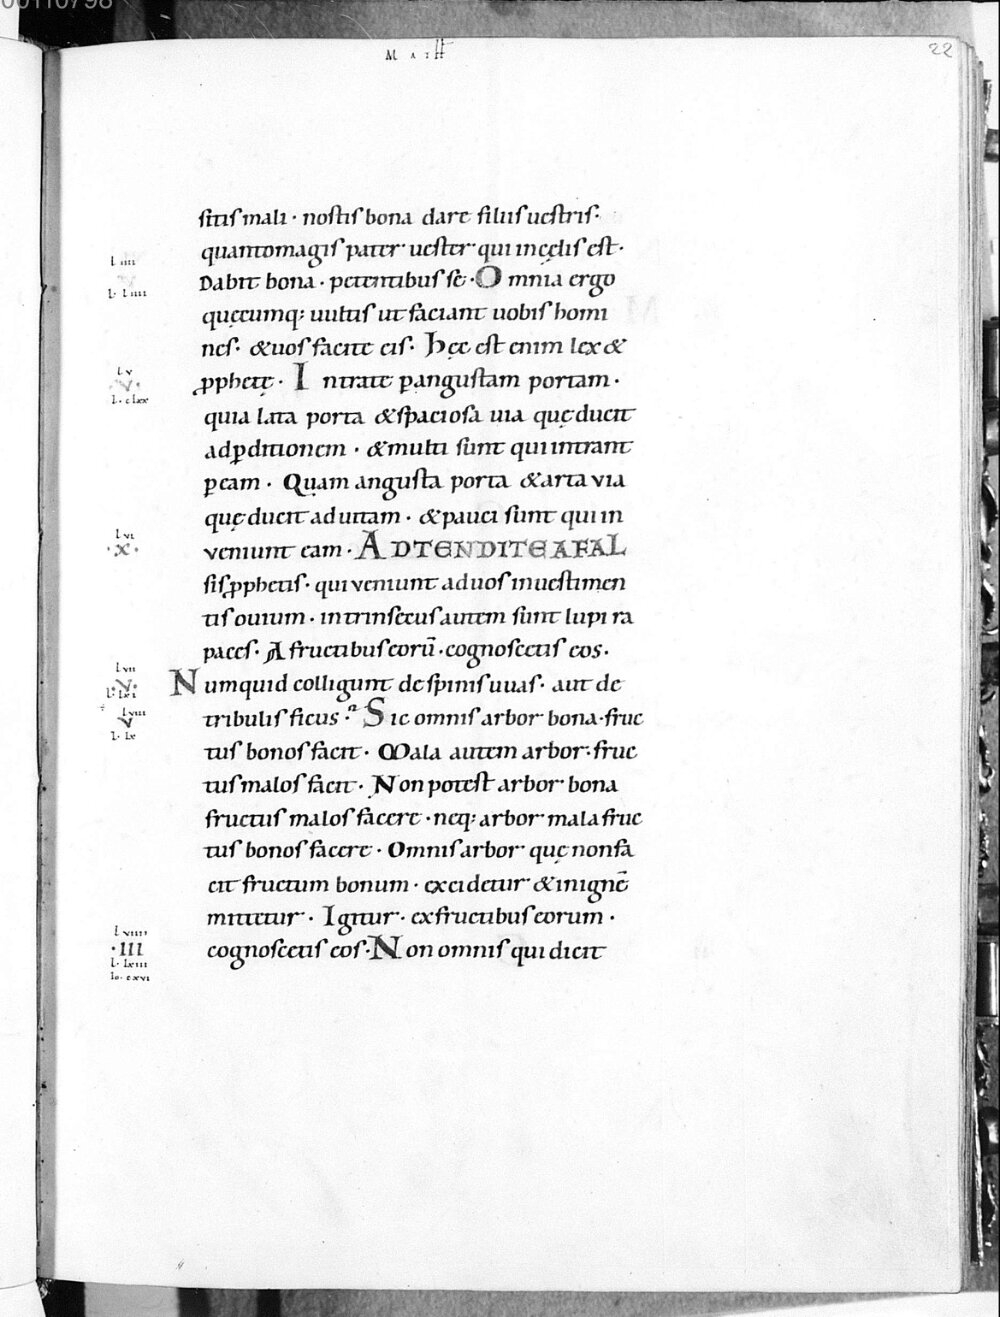 00110798
MATT
22
sitis mali · nostis bona dare filiis uestris ·
quantomagis pater uester qui incęlis est ·
Dabit bona · petentibus se · Omnia ergo
quęcumq; uultis ut faciant uobis homi
nes · & uos facite eis · Hęc est enim lex &
ꝓphetę · Intrate ꝑangustam portam ·
quia lata porta & spaciosa uia quę ducit
adꝑditionem · & multi sunt qui intrant
ꝑeam · Quam angusta porta & arta via
quę ducit ad uitam · & pauci sunt qui in
veniunt eam · ADTENDITE A FAL
sis ꝓphetis · qui veniunt ad uos in uestimen
tis ouium · intrinsecus autem sunt lupi ra
paces · A fructibus eorū · cognoscetis eos ·
Numquid colligunt de spinis uuas · aut de
tribulis ficus · Sic omnis arbor bona · fruc
tus bonos facit · Mala autem arbor · fruc
tus malos facit · Non potest arbor bona
fructus malos facere · neq; arbor mala fruc
tus bonos facere · Omnis arbor quę non fa
cit fructum bonum · excidetur & in ignē
mittetur · Igitur · ex fructibus eorum ·
cognoscetis eos · Non omnis qui dicit
L iiii
L · Liiii
Lv
V
L · cLxx
Lvi
· X ·
Lvii
V
L · Lxi
Lviii
V
L · Lx
Lviiii
· III
L · Lxiii
Io · cxvi